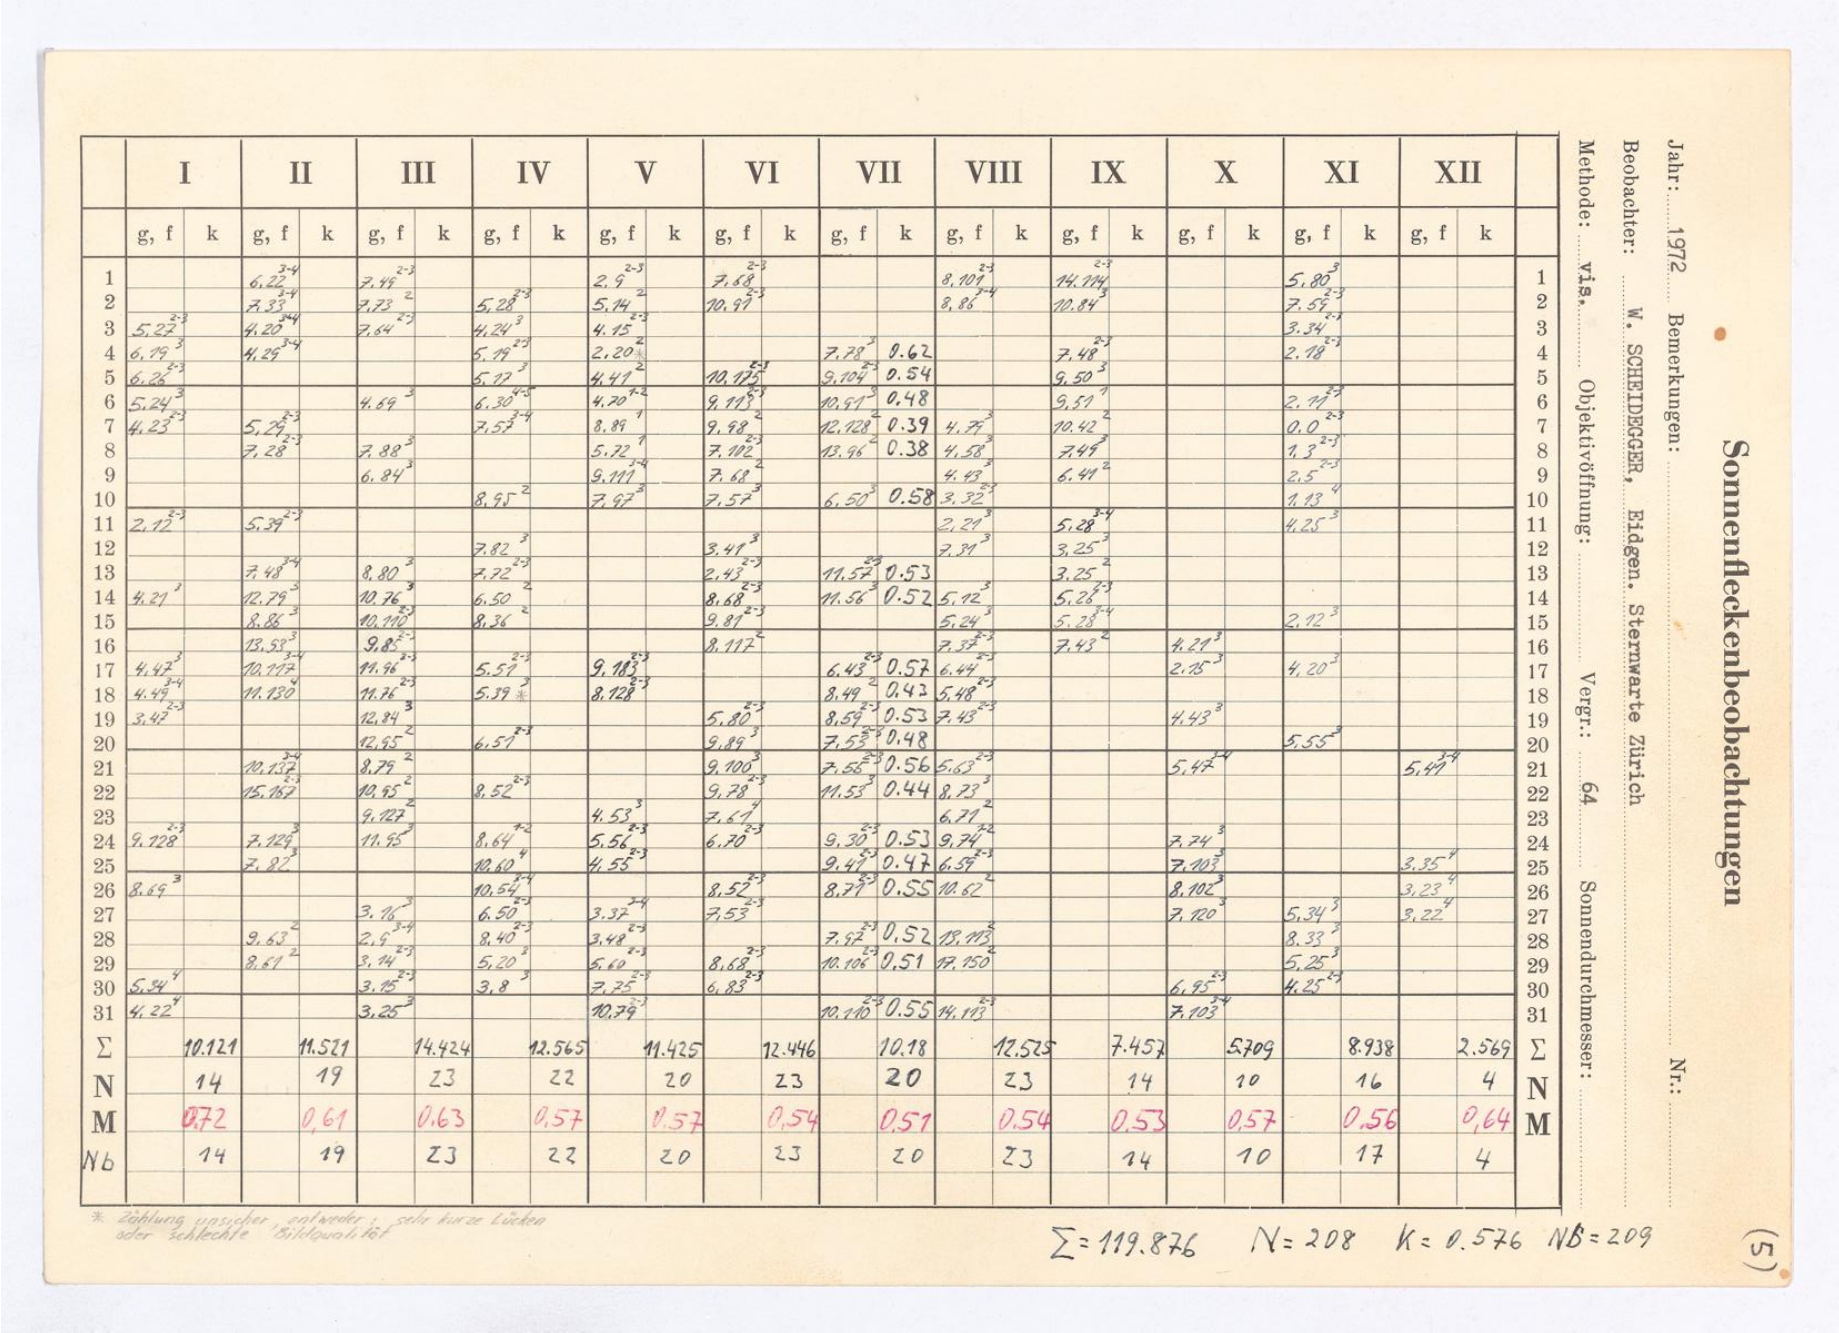 Sonnenfleckenbeobachtungen
Jahr: 1972 Bemerkungen: Nr.:
Beobachter: W. SCHEIDEGGER, Eidgen. Sternwarte Zürich
Methode: vis. Objektivöffnung: Vergr.: 64 Sonnendurchmesser:
I II III IV V VI VII VIII IX X XI XII
g, f k g, f k g, f k g, f k g, f k g, f k g, f k g, f k g, f k g, f k g, f k g, f k
1 6.22 3-4 7.49 2-3 2.9 2-3 7.68 2-3 8.101 2-3 14.114 2-3 5.80 3 1
2 7.33 3-4 7.73 2 5.28 2-3 5.14 2 10.91 2-3 8.86 3-4 10.84 3 7.59 2-3 2
3 5.27 2-3 4.20 3-4 7.64 2-3 4.24 3 4.15 2-3 3.34 2-3 3
4 6.19 3 4.29 3-4 5.19 2-3 2.20* 2 7.78 3 0.62 7.48 2-3 2.18 2-3 4
5 6.26 2-3 5.17 3 4.41 2 10.175 2-3 9.104 2-3 0.54 9.50 3 5
6 5.24 3 4.69 3 6.30 4-5 4.70 1-2 9.113 2-3 10.91 3 0.48 9.51 1 2.11 2-3 6
7 4.23 2-3 5.29 2-3 7.57 3-4 8.89 1 9.98 2 12.128 2 0.39 4.79 3 10.42 2 0.0 2-3 7
8 7.28 2-3 7.88 3 5.72 1 7.102 2-3 13.96 2 0.38 4.58 3 7.49 3 1.3 2-3 8
9 6.84 3 9.111 3-4 7.68 2 4.43 3 6.41 2 2.5 2-3 9
10 8.95 2 7.97 3 7.57 3 6.50 3 0.58 3.32 2-3 1.13 4 10
11 2.12 2-3 5.39 2-3 2.21 3 5.28 3-4 4.25 3 11
12 7.82 3 3.41 3 7.31 3 3.25 3 12
13 7.48 3-4 8.80 3 7.72 2-3 2.43 2-3 11.57 2-3 0.53 3.25 2 13
14 4.21 3 12.79 3 10.76 3 6.50 2 8.68 2-3 11.56 3 0.52 5.12 3 5.26 2-3 14
15 8.86 3 10.110 2-3 8.36 2 9.81 2-3 5.24 3 5.28 3-4 2.12 3 15
16 13.93 3 9.85 2-3 8.117 2 7.37 2-3 7.43 2 4.21 3 16
17 4.47 3 10.117 3-4 11.96 2-3 5.51 2-3 9.183 2-3 6.43 2-3 0.57 6.44 2-3 2.15 3 4.20 3 17
18 4.49 3-4 11.130 4 11.76 2-3 5.39* 3 8.128 2-3 8.49 2 0.43 5.48 2-3 18
19 3.47 2-3 12.84 3 5.80 2-3 8.59 2-3 0.53 7.43 2-3 4.43 3 19
20 12.95 2 6.51 2-3 9.89 3 7.53 2-3 0.48 5.55 3 20
21 10.137 3-4 8.79 2 9.100 3 7.56 2-3 0.56 5.63 2-3 5.47 3-4 5.41 3-4 21
22 15.167 2-3 10.95 2 8.52 2-3 9.78 2-3 11.53 3 0.44 8.73 3 22
23 9.127 2 4.53 3 7.61 4 6.71 2 23
24 9.128 2-3 7.129 3 11.95 3 8.64 1-2 5.56 2-3 6.70 2-3 9.30 2-3 0.53 9.74 1-2 7.74 3 24
25 7.82 3 10.60 4 4.55 2-3 9.41 2-3 0.47 6.59 2-3 7.103 3 3.35 4 25
26 8.69 3 10.54 3-4 8.52 2-3 8.71 2-3 0.55 10.62 2 8.102 3 3.23 4 26
27 3.16 3 6.50 2-3 3.37 3-4 7.53 2-3 7.120 3 5.34 3 3.22 4 27
28 9.63 2 2.9 3-4 8.40 2-3 3.48 2-3 7.97 2-3 0.52 13.113 2 8.33 3 28
29 8.61 2 3.14 2-3 5.20 3 5.60 2-3 8.68 2-3 10.106 2-3 0.51 17.150 2 5.25 3 29
30 5.34 4 3.15 2-3 3.8 3 7.75 2-3 6.83 2-3 6.95 2-3 4.25 2-3 30
31 4.22 4 3.25 3 10.79 2-3 10.110 2-3 0.55 14.113 2-3 7.103 3-4 31
Σ 10.121 11.521 14.424 12.565 11.425 12.446 10.18 12.525 7.457 5.709 8.938 2.569 Σ
N 14 19 23 22 20 23 20 23 14 10 16 4 N
M 0.72 0,61 0.63 0,57 0.57 0,54 0,51 0.54 0.53 0,57 0.56 0,64 M
Nb 14 19 23 22 20 23 20 23 14 10 17 4
* Zählung unsicher, entweder: sehr kurze Lücken
oder schlechte Bildqualität
Σ = 119.876 N = 208 K = 0.576 NB = 209
(5)